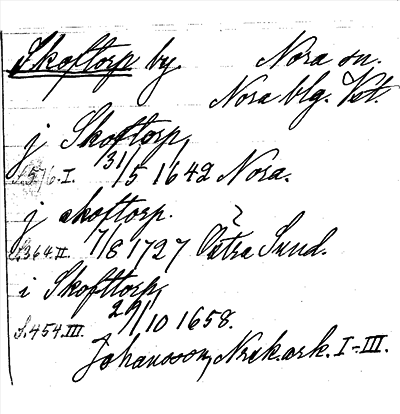 Skoftorp by. Nora sn.
Nora blg. Vstm.
j Skoftorp,
S. 576. I. 31/5 1642 Nora.
j skoftorp.
S. 364. II. 7/8 1727 Östra Sund.
i Skofttorp,
S. 454. III. 29/10 1658.
Johansson, Norask. ark. I-III.